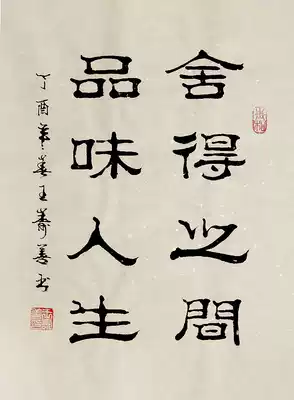 舍得之間
品味人生
丁酉年春王壽善書